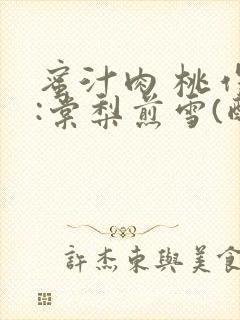 蜜汁肉桃作
:棠梨煎雪(酥
許杰東與美食